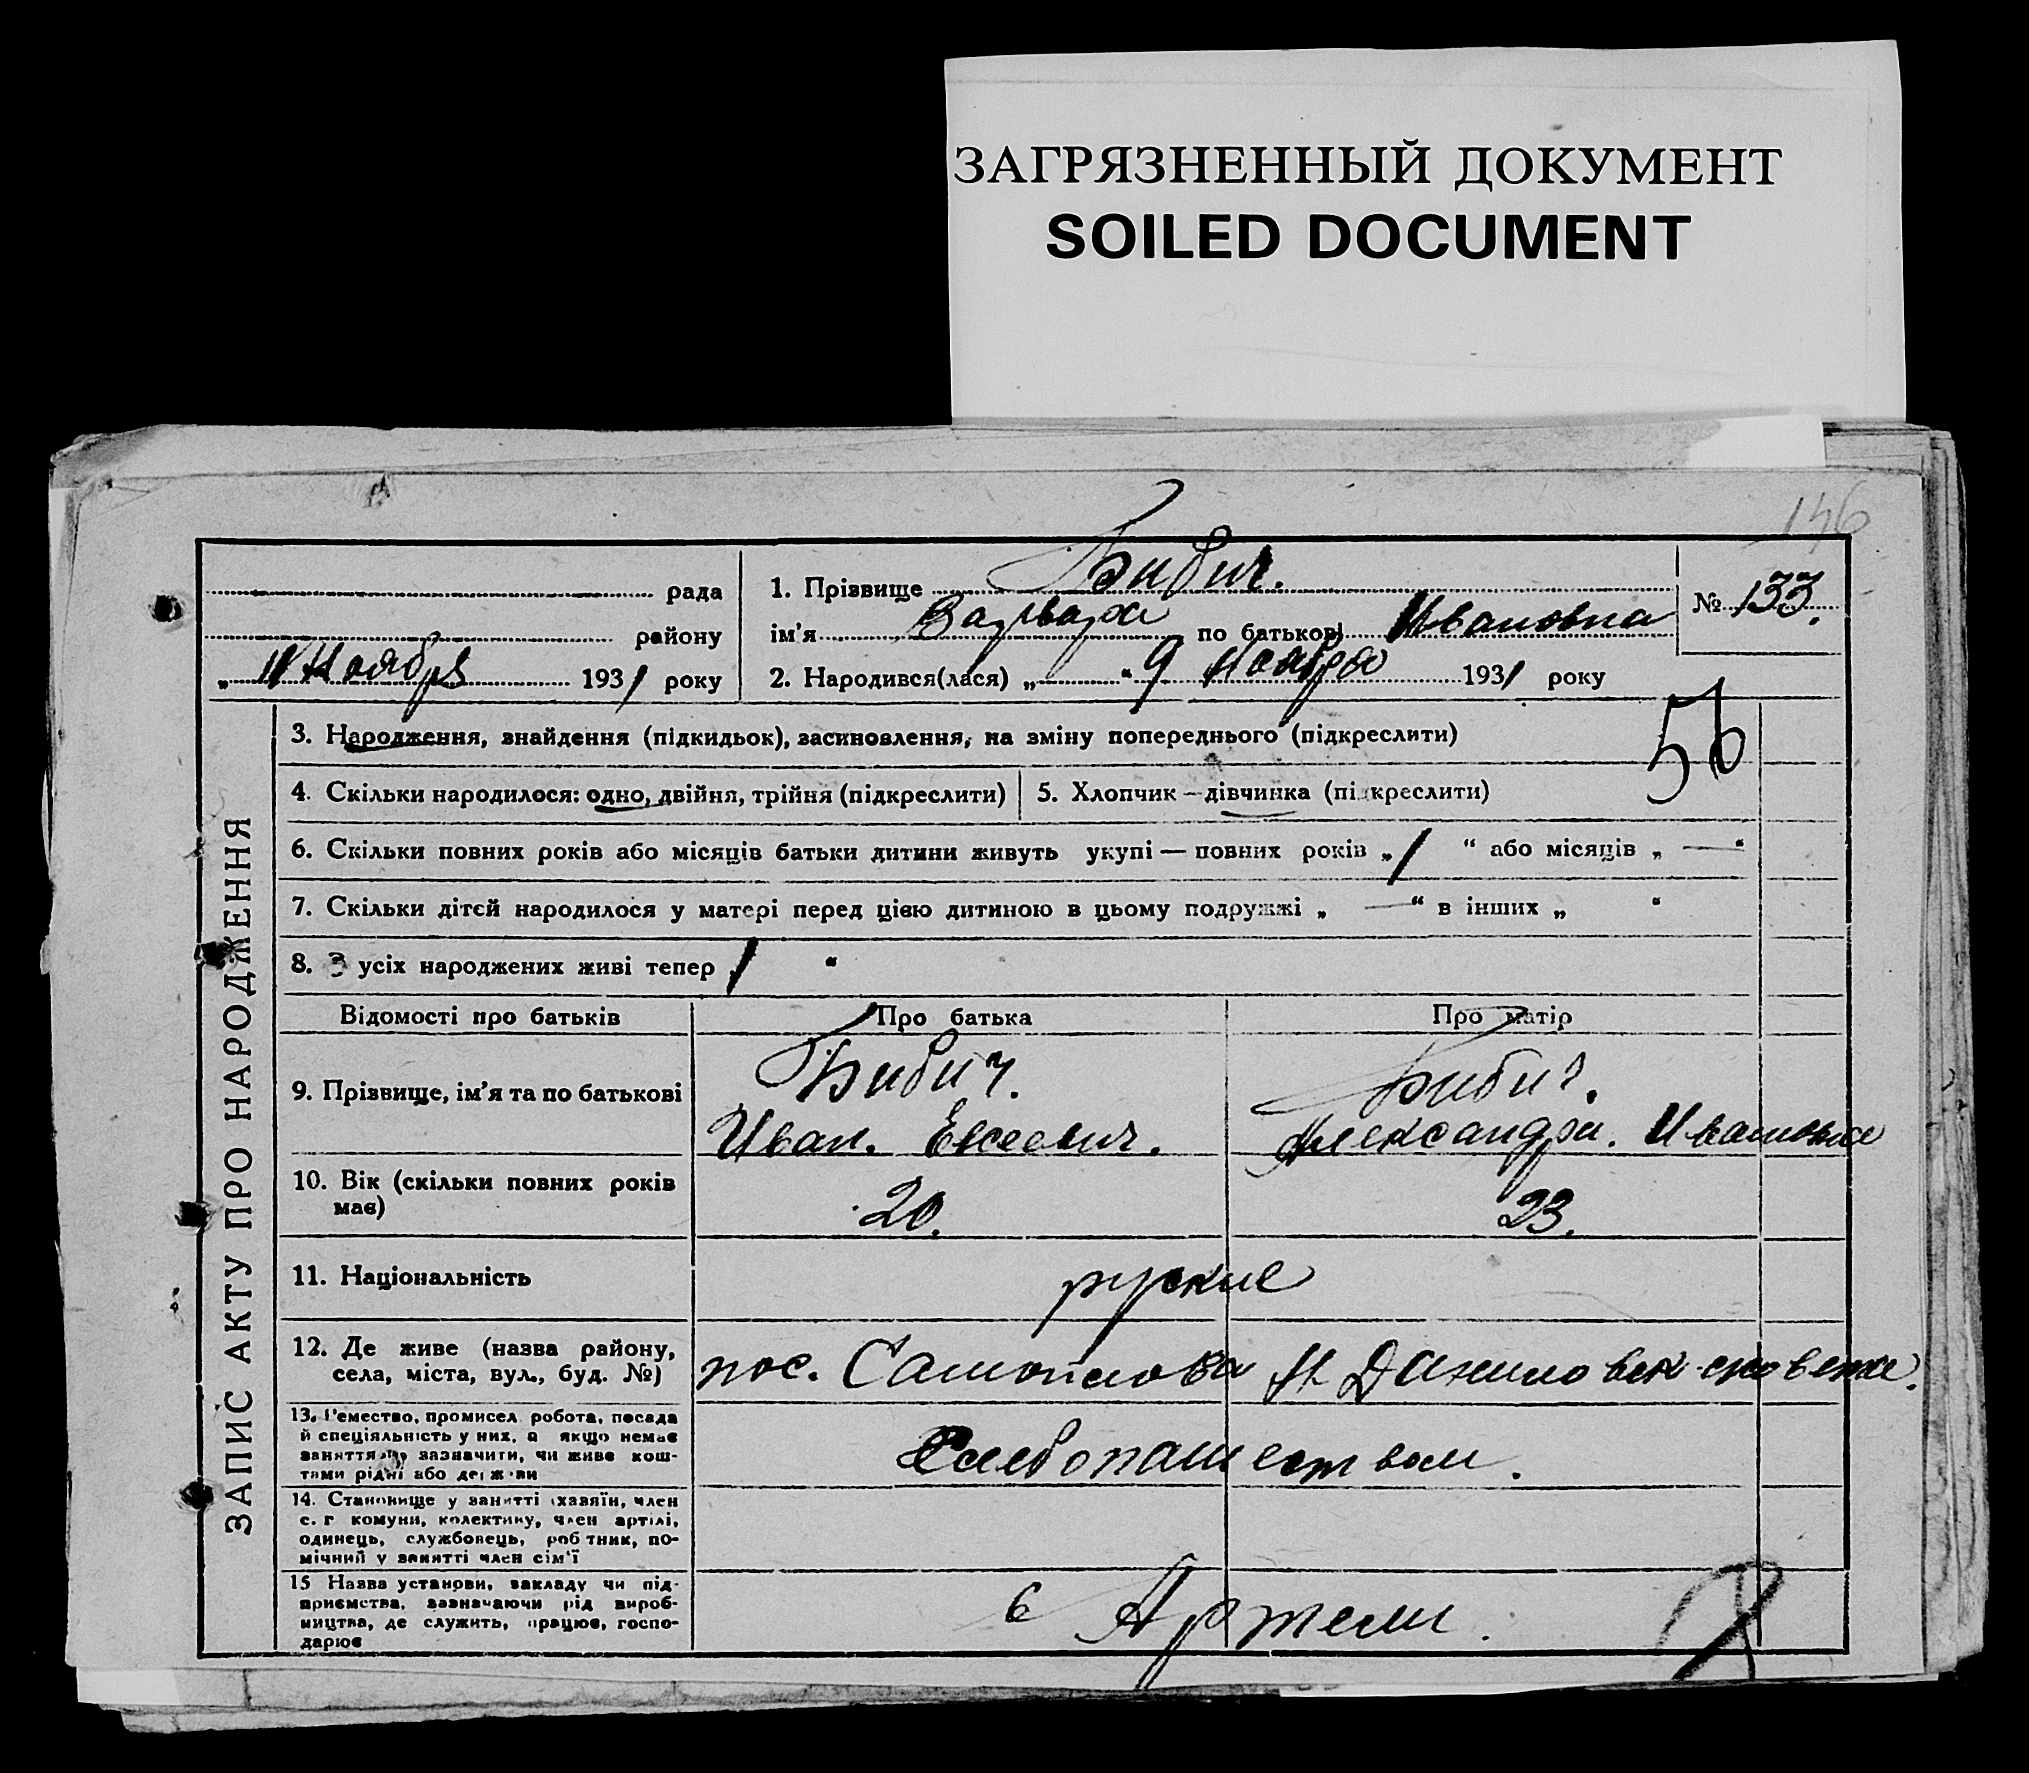 ЗАГРЯЗНЕННЫЙ ДОКУМЕНТ
SOILED DOCUMENT
146
рада
району
„ 11 Ноября 1931 року
1. Прізвище Бибич.
ім'я Варвара по батькові Ивановна
2. Народився(лася) „ “ 9 Ноября 1931 року
№ 133.
56
ЗАПИС АКТУ ПРО НАРОДЖЕННЯ
3. Народження, знайдення (підкидьок), засиновлення, на зміну попереднього (підкреслити)
4. Скільки народилося: одно, двійня, трійня (підкреслити)
5. Хлопчик — дівчинка (підкреслити)
6. Скільки повних років або місяців батьки дитини живуть укупі — повних років „ 1 “ або місяців „ — “
7. Скільки дітєй народилося у матері перед цією дитиною в цьому подружжі „ — “ в інших „ “
8. З усіх народжених живі тепер „ 1 “
Відомості про батьків
Про батька
Про матір
9. Прізвище, ім'я та по батькові
Бибич.
Иван. Евсеевич.
Бибич.
Александра. Ивановна
10. Вік (скільки повних років має)
20.
23.
11. Національність
руские
12. Де живе (назва району, села, міста, вул., буд. №)
пос. Самойловка
13. Ремество, промисел, робота, посада
й спеціяльність у них, а якщо немає
заняття, то зазначити, чи живе кош-
тами рідні або держави
14. Становище у занятті (хазяїн, член
с. г. комуни, колективу, член артілі,
одинець, службовець, робітник, по-
мічний у занятті член сім'ї
15 Назва установи, закладу чи під-
приємства, зазначаючи рід вироб-
ництва, де служить, працює, госпо-
дарює
в Артели.